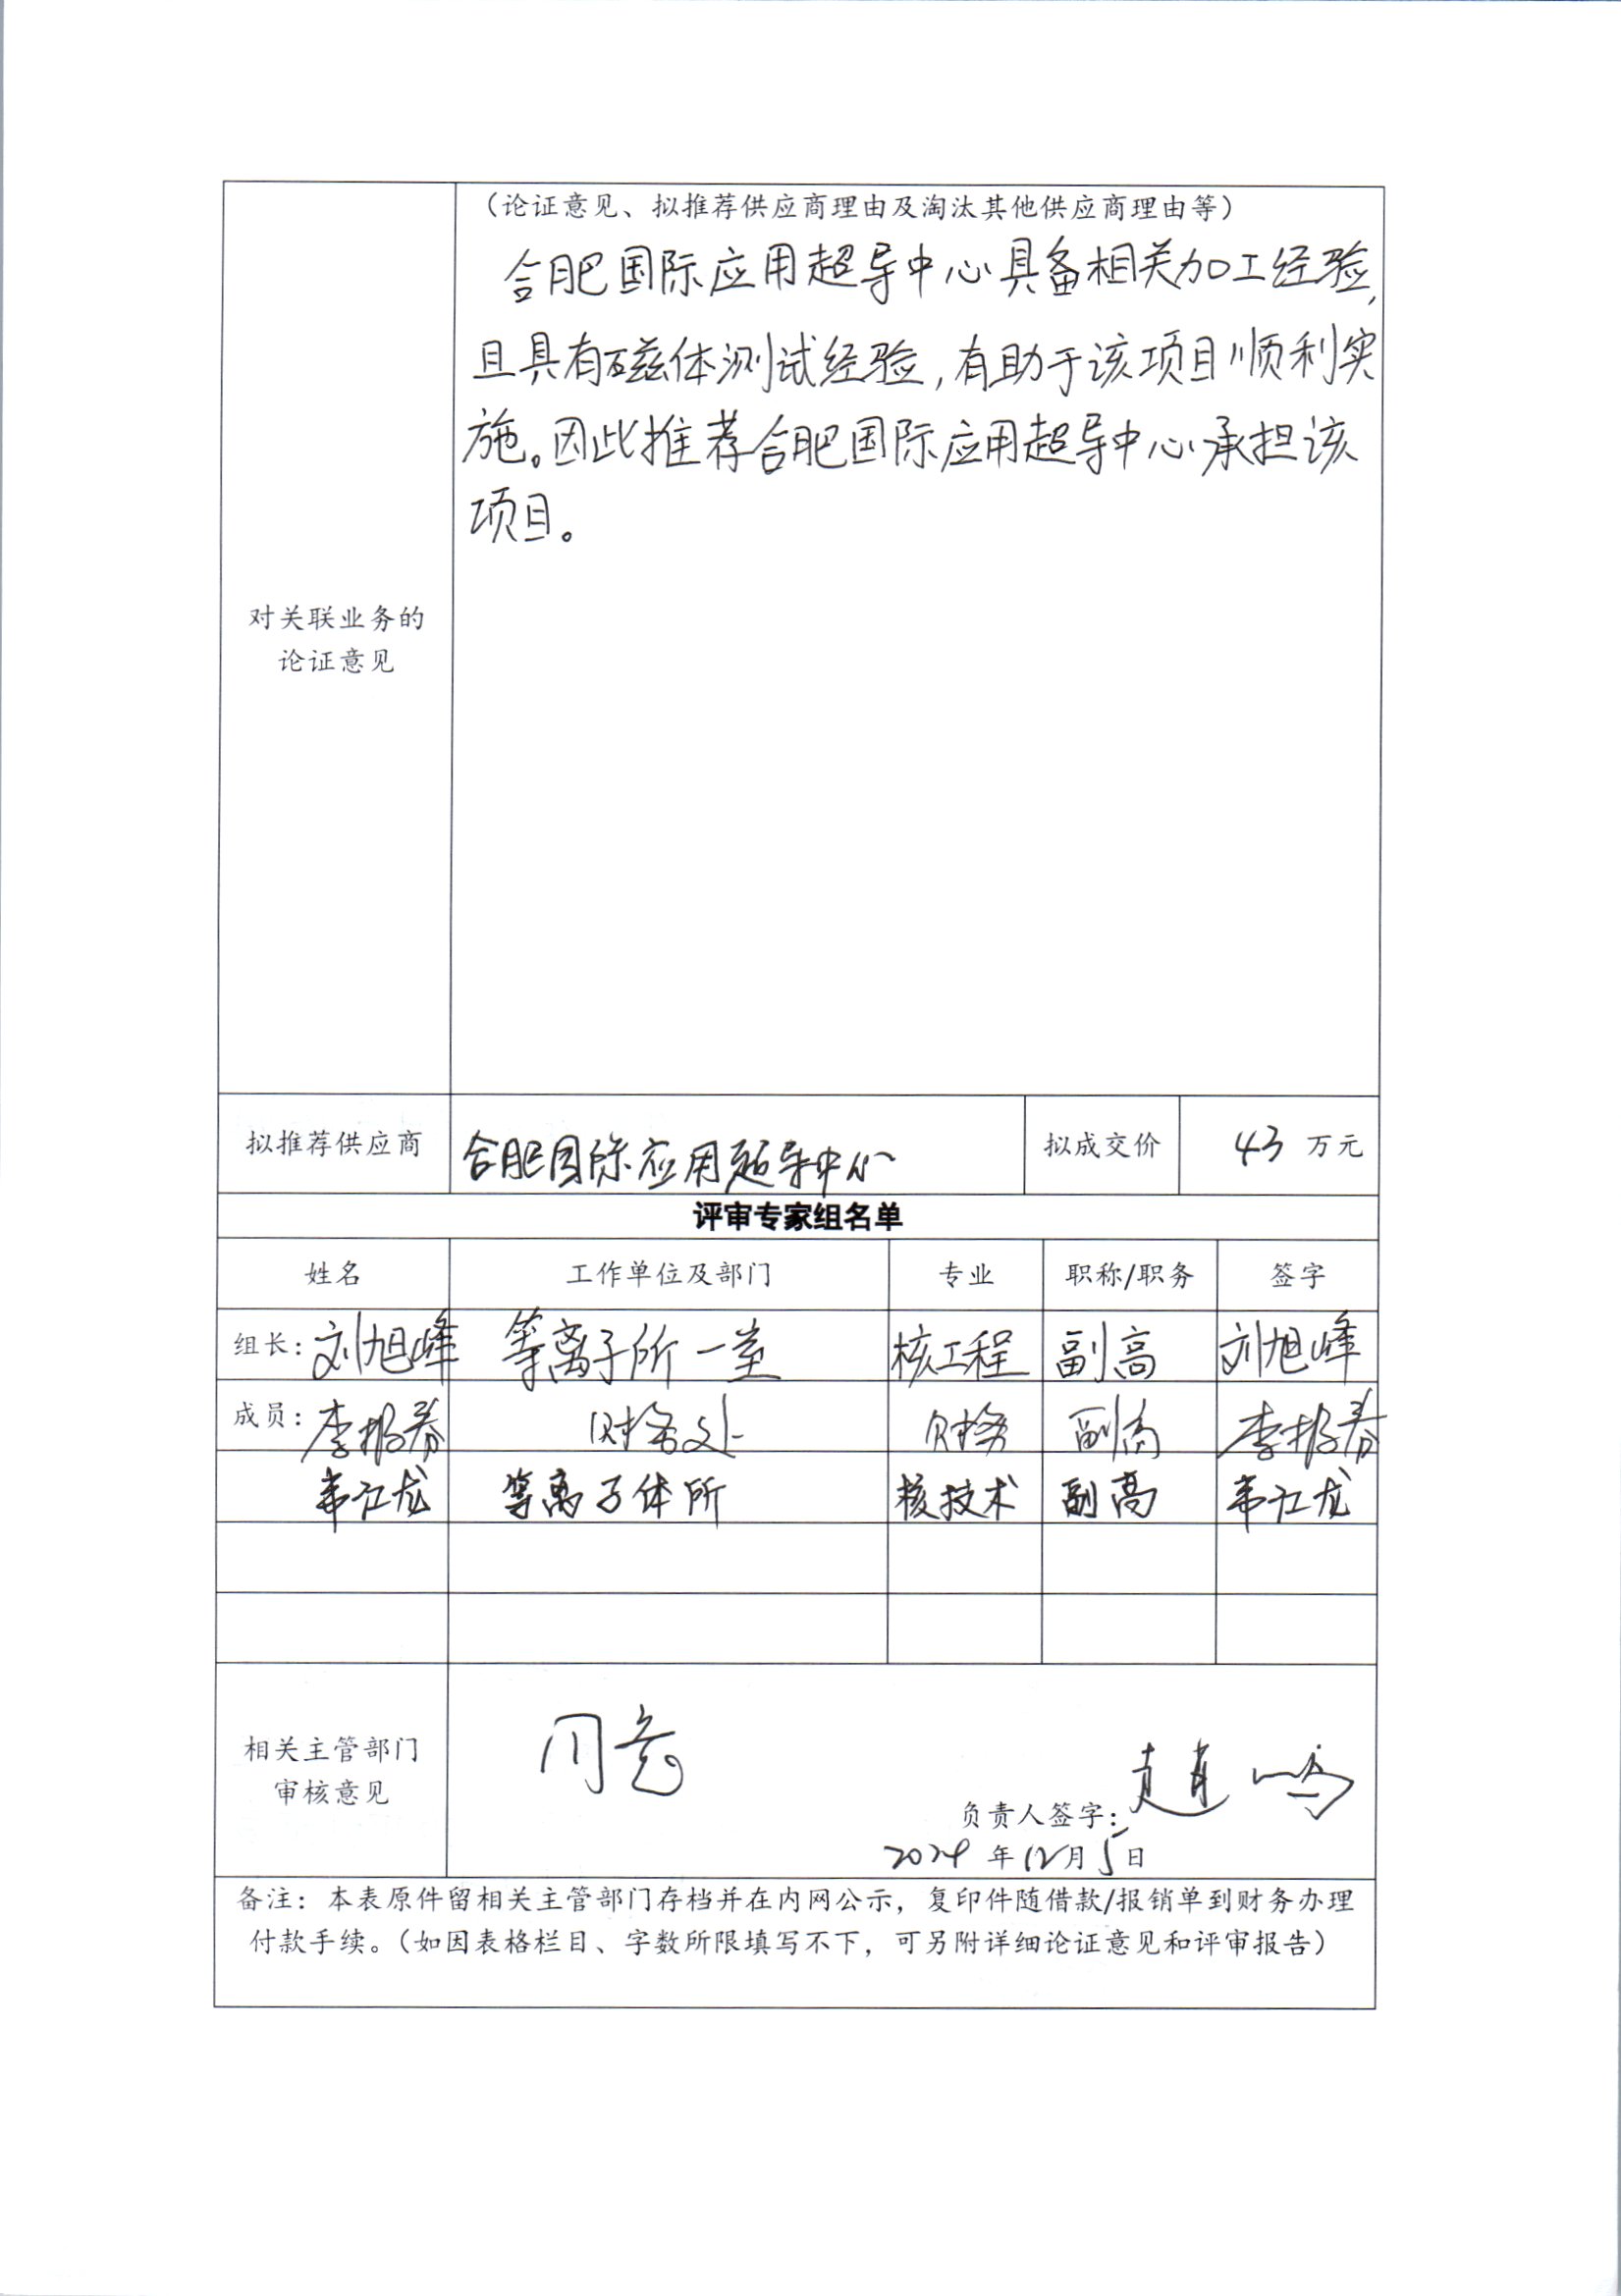 （论证意见、拟推荐供应商理由及淘汰其他供应商理由等）
合肥国际应用超导中心具备相关加工经验,
且具有磁体测试经验,有助于该项目顺利实
施。因此推荐合肥国际应用超导中心承担该
项目。
对关联业务的
论证意见
拟推荐供应商 合肥国际应用超导中心 拟成交价 43 万元
评审专家组名单
姓名 工作单位及部门 专业 职称/职务 签字
组长：刘旭峰 等离子所一室 核工程 副高 刘旭峰
成员：李 财务处 财务 副高 李
韦江龙 等离子体所 核技术 副高 韦江龙
相关主管部门
审核意见
同意
负责人签字：赵
2024 年 12 月 5 日
备注：本表原件留相关主管部门存档并在内网公示，复印件随借款/报销单到财务办理
付款手续。（如因表格栏目、字数所限填写不下，可另附详细论证意见和评审报告）